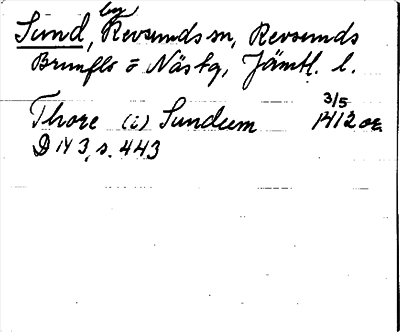 Sund, by, Revsunds sn, Revsunds
Brunflo o Näs tg, Jämtl. l.
Thore (i) Sundum 3/5 1412 or.
D N 3, s. 443